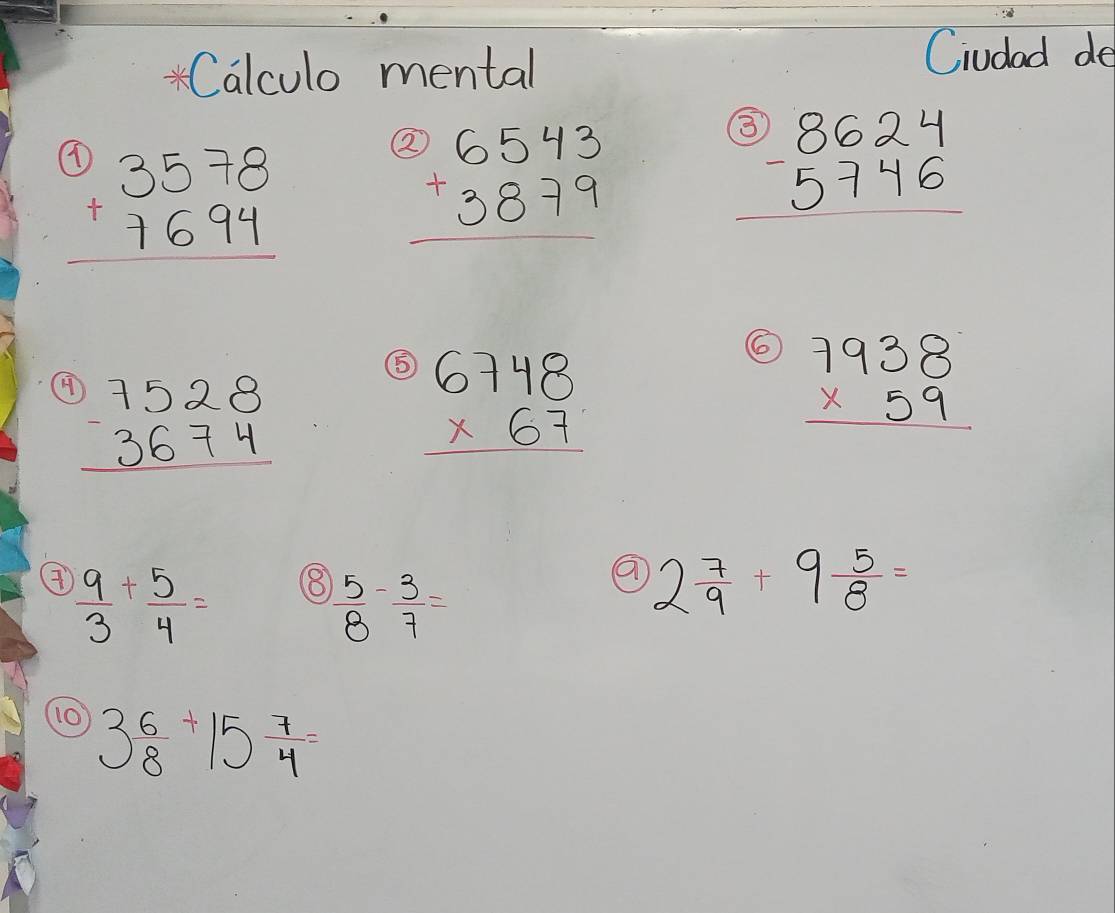 *Cálculo mental
Ciudad de
① 3578
+ 7694
② 6543
+ 3879
③ 8624
- 5746
④ 7528
- 3674
⑤ 6748
x 67
⑥ 7938
x 59
⑦ 9/3 + 5/4 =
⑧ 5/8 - 3/7 =
⑨ 2 7/9 + 9 5/8 =
⑩ 3 6/8 + 15 7/4 =